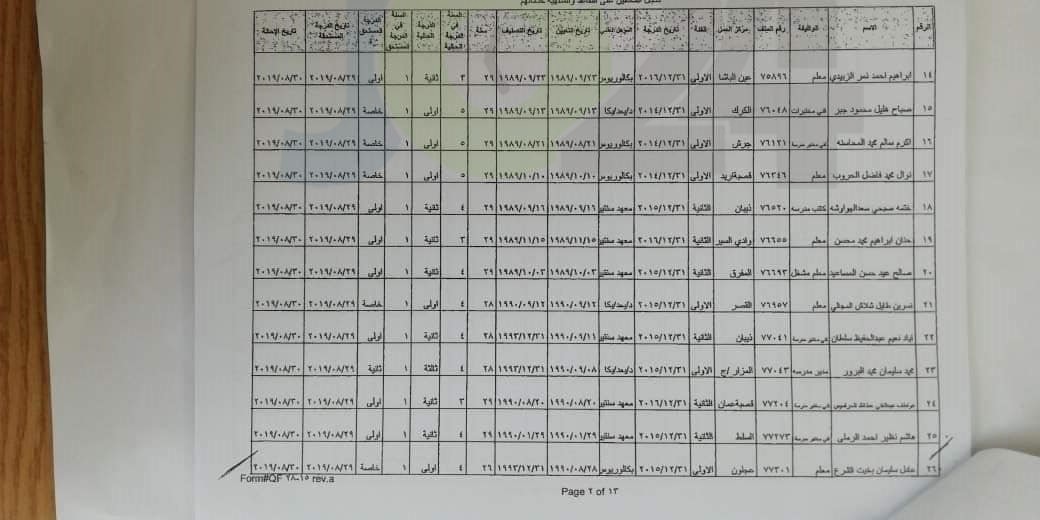 الرقم الاسم الوظيفة رقم الملف مركز العمل الفئة تاريخ الدرجة المؤهل العلمي تاريخ التعيين تاريخ التصنيف سنة السنة في الدرجة الحالية الدرجة الحالية السنة في الدرجة المستحق الدرجة المستحق تاريخ الدرجة المستحقة تاريخ الإحالة
١٤ ابراهيم احمد نمر الزبيدي معلم ٧٥٨٩٦ عين الباشا الاولى ٢٠١٦/١٢/٣١ بكالوريوس ١٩٨٩/٠٩/٢٣ ١٩٨٩/٠٩/٢٣ ٢٩ ٣ ثانية ١ اولى ٢٠١٩/٠٨/٢٩ ٢٠١٩/٠٨/٣٠
١٥ صباح خليل محمود جبر فني مختبرات ٧٦٠٤٨ الكرك الاولى ٢٠١٤/١٢/٣١ ١٩٨٩/٠٩/١٣ ١٩٨٩/٠٩/١٣ ٢٩ ٥ اولى ١ خاصة ٢٠١٩/٠٨/٢٩ ٢٠١٩/٠٨/٣٠
١٦ اكرم سالم محمد المحاسنه ٧٦١٢١ جرش الاولى ٢٠١٤/١٢/٣١ بكالوريوس ١٩٨٩/٠٨/٢١ ١٩٨٩/٠٨/٢١ ٢٩ ٥ اولى ١ خاصة ٢٠١٩/٠٨/٢٩ ٢٠١٩/٠٨/٣٠
١٧ نوال محمد فاضل الحروب معلم ٧٦٣٤٦ قصبة اربد الاولى ٢٠١٤/١٢/٣١ بكالوريوس ١٩٨٩/١٠/١٠ ١٩٨٩/١٠/١٠ ٢٩ ٥ اولى ١ خاصة ٢٠١٩/٠٨/٢٩ ٢٠١٩/٠٨/٣٠
١٨ صبحي كاتب مدرسه ٧٦٥٢٠ ذيبان الثانية ٢٠١٥/١٢/٣١ معهد سنتين ١٩٨٩/٠٩/١٦ ١٩٨٩/٠٩/١٦ ٢٩ ٤ ثانية ١ اولى ٢٠١٩/٠٨/٢٩ ٢٠١٩/٠٨/٣٠
١٩ حنان ابراهيم محمد محسن معلم ٧٦٦٥٥ وادي السير الثانية ٢٠١٦/١٢/٣١ معهد سنتين ١٩٨٩/١١/١٥ ١٩٨٩/١١/١٥ ٢٩ ٣ ثانية ١ اولى ٢٠١٩/٠٨/٢٩ ٢٠١٩/٠٨/٣٠
٢٠ صالح عيد حسن المساعيد معلم مشغل ٧٦٦٩٣ المفرق الثانية ٢٠١٥/١٢/٣١ معهد سنتين ١٩٨٩/١٠/٠٣ ١٩٨٩/١٠/٠٣ ٢٩ ٤ ثانية ١ اولى ٢٠١٩/٠٨/٢٩ ٢٠١٩/٠٨/٣٠
٢١ نسرين طايل شلاش المجالي معلم ٧٦٩٥٧ القصر الاولى ٢٠١٥/١٢/٣١ ١٩٩٠/٠٩/١٢ ١٩٩٠/٠٩/١٢ ٢٨ ٤ اولى ١ خاصة ٢٠١٩/٠٨/٢٩ ٢٠١٩/٠٨/٣٠
٢٢ اياد نعيم عبدالحفيظ سلطان ٧٧٠٤١ ذيبان الثانية ٢٠١٥/١٢/٣١ معهد سنتين ١٩٩٠/٠٩/١١ ١٩٩٣/١٢/٣١ ٢٨ ٤ ثانية ١ اولى ٢٠١٩/٠٨/٢٩ ٢٠١٩/٠٨/٣٠
٢٣ محمد سليمان محمد البرور مدير مدرسه ٧٧٠٤٣ المزار /ج الاولى ٢٠١٥/١٢/٣١ ١٩٩٠/٠٩/٠٨ ١٩٩٣/١٢/٣١ ٢٨ ٤ ثالثة ١ ثانية ٢٠١٩/٠٨/٢٩ ٢٠١٩/٠٨/٣٠
٢٤ ٧٧٢٠٤ قصبة عمان الثانية ٢٠١٦/١٢/٣١ معهد سنتين ١٩٩٠/٠٨/٢٠ ١٩٩٠/٠٨/٢٠ ٢٩ ٣ ثانية ١ اولى ٢٠١٩/٠٨/٢٩ ٢٠١٩/٠٨/٣٠
٢٥ هاشم نظير احمد الرملي ٧٧٢٧٣ السلط الثانية ٢٠١٥/١٢/٣١ معهد سنتين ١٩٩٠/٠١/٢٩ ١٩٩٠/٠١/٢٩ ٢٩ ٤ ثانية ١ اولى ٢٠١٩/٠٨/٢٩ ٢٠١٩/٠٨/٣٠
٢٦ عادل سليمان بخيت الشرع معلم ٧٧٣٠١ عجلون الاولى ٢٠١٥/١٢/٣١ بكالوريوس ١٩٩٠/٠٨/٢٨ ١٩٩٣/١٢/٣١ ٢٦ ٤ اولى ١ خاصة ٢٠١٩/٠٨/٢٩ ٢٠١٩/٠٨/٣٠
Form#QF ٢٨-١٥ rev.a
Page ٢ of ١٣